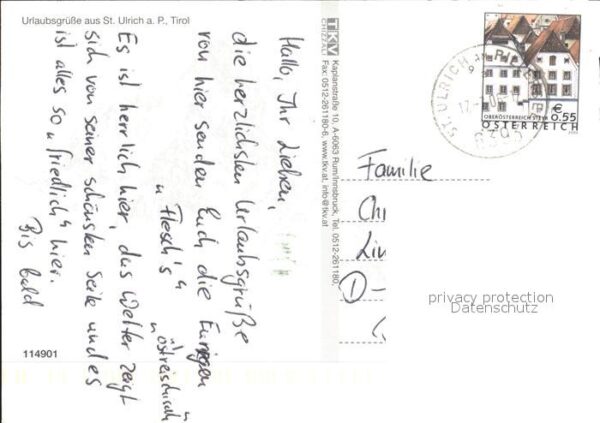 Urlaubsgrüße aus St. Ulrich a. P., Tirol
Hallo, Ihr Lieben,
die herzlichsten Urlaubsgrüße
von hier senden Euch die
„Flesch's"
Es ist herrlich hier, das Wetter zeigt
sich von seiner schönsten Seite und es
ist alles so „friedlich" hier.
Bis bald
114901
TKV
CHIZZALI
Kaplanstraße 10, A-6063 Rum/Innsbruck, Tel. 0512-261180,
Fax: 0512-261180-6, www.tkv.at, info@tkv.at
ST. ULRICH AM PILLE
6393
€ 0.55
OBERÖSTERREICH STEYR
ÖSTERREICH
Familie
Ch
D-
privacy protection
Datenschutz